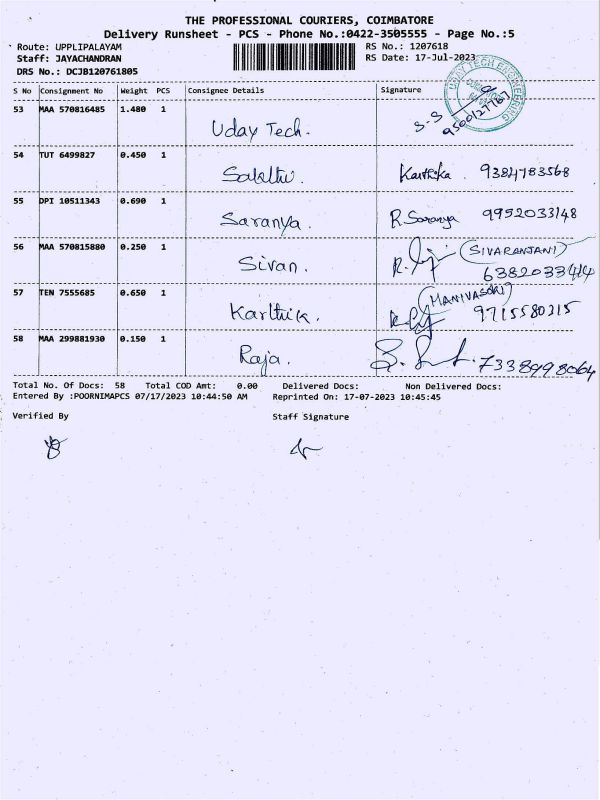 THE PROFESSIONAL COURIERS, COIMBATORE
Delivery Runsheet - PCS - Phone No.:0422-3505555 - Page No.:5
Route: UPPLIPALAYAM
RS No.: 1207618
Staff: JAYACHANDRAN
RS Date: 17-Jul-2023
DRS No.: DCJB120761805
UDAY TECH ENGINEERING
S No Consignment No Weight PCS Consignee Details Signature
53 MAA 570816485 1.480 1 Uday Tech. S-S 9500127767
54 TUT 6499827 0.450 1 Sakthi. Karthika 9384783568
55 DPI 10511343 0.690 1 Saranya. R.Saranya 9952033148
56 MAA 570815880 0.250 1 Sivan. (SIVARANJANI) 6382033414
57 TEN 7555685 0.650 1 Karthik. 9715580315
58 MAA 299881930 0.150 1 Raja. 7338998064
Total No. Of Docs: 58 Total COD Amt: 0.00 Delivered Docs: Non Delivered Docs:
Entered By :POORNIMAPCS 07/17/2023 10:44:50 AM Reprinted On: 17-07-2023 10:45:45
Verified By Staff Signature